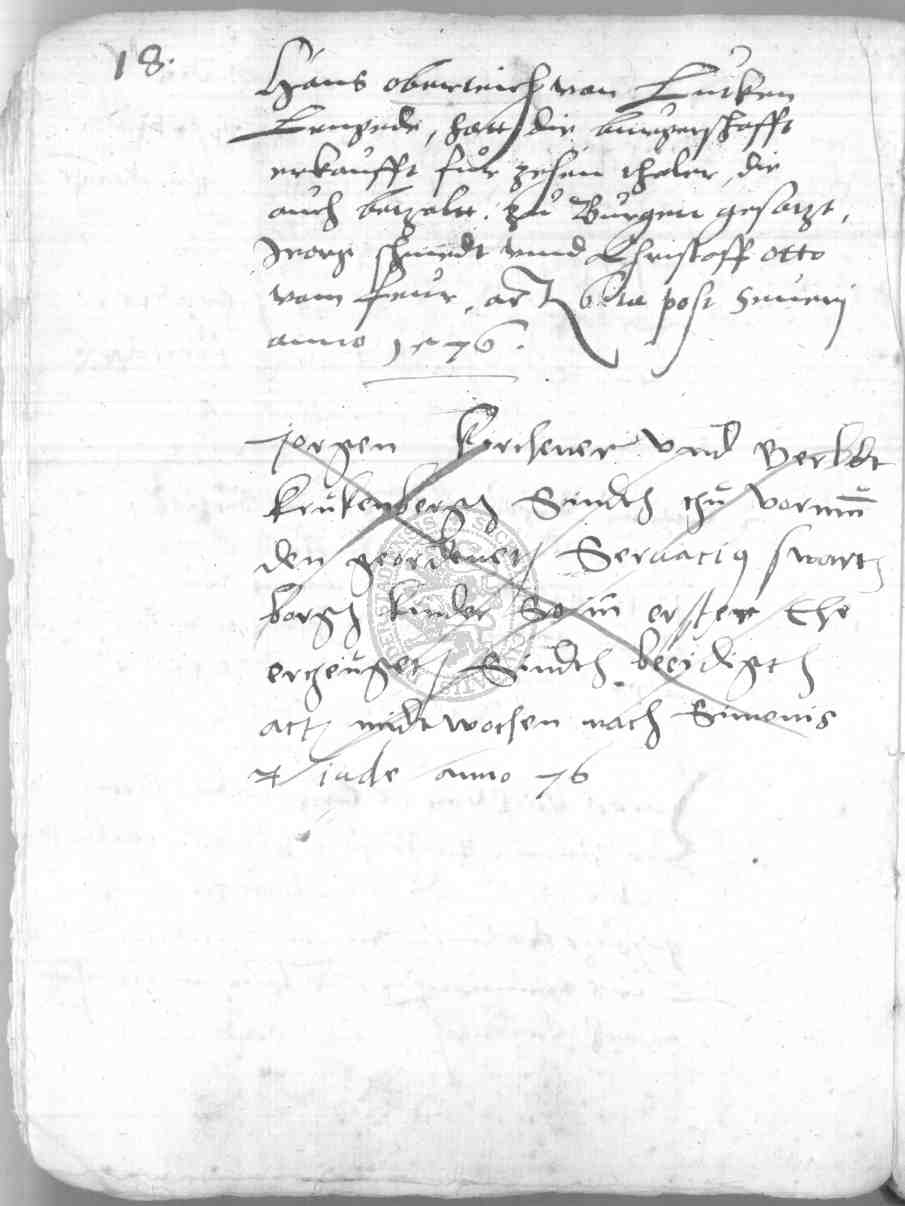 18.
Hans oberreich von Lutken
Lengede, hatt die burgerschafft
erkaufft fur zehen thaler, die
auch betzaltt. zu Burgen gesatzt,
Jeorg schmidt vnnd Christoff otto
vom feur, act 6ta post Seueri
anno 1576.
Jorgen Kirchener vnd
Krukenbergh Sindth zhu vormun
den geordenet / Seruacius swartz
borgh kinder So in erster Ehe
erzeuget / Sindth beeidigth
act midtwochen nach Simonis
et iude anno 76